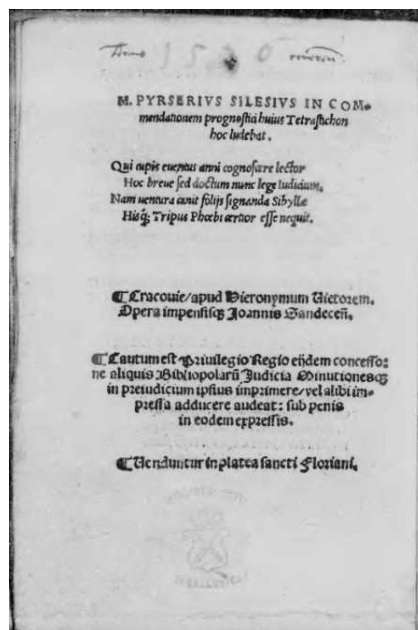 M. PYRSERIVS SILESIVS IN COM-
mendationem prognostici huius Tetrastichon
hoc ludebat.
Qui cupis euentus anni cognoscere lector
Hoc breue sed doctum nunc lege Iudicium.
Nam uentura canit folijs signanda Sibyllæ
Hisq; Tripus Phœbi certior esse nequit.
¶ Cracouie/apud Hieronymum Uietorem.
Opera impensisq; Joannis Sandeceñ.
¶ Cautum est Priuilegio Regio eijdem concesso:
ne aliquis Bibliopolarū Judicia Minutionesq;
in preiudicium ipsius imprimere/vel alibi im-
pressa adducere audeat: sub penis
in eodem expressis.
¶ Uenduntur in platea sancti Floriani.